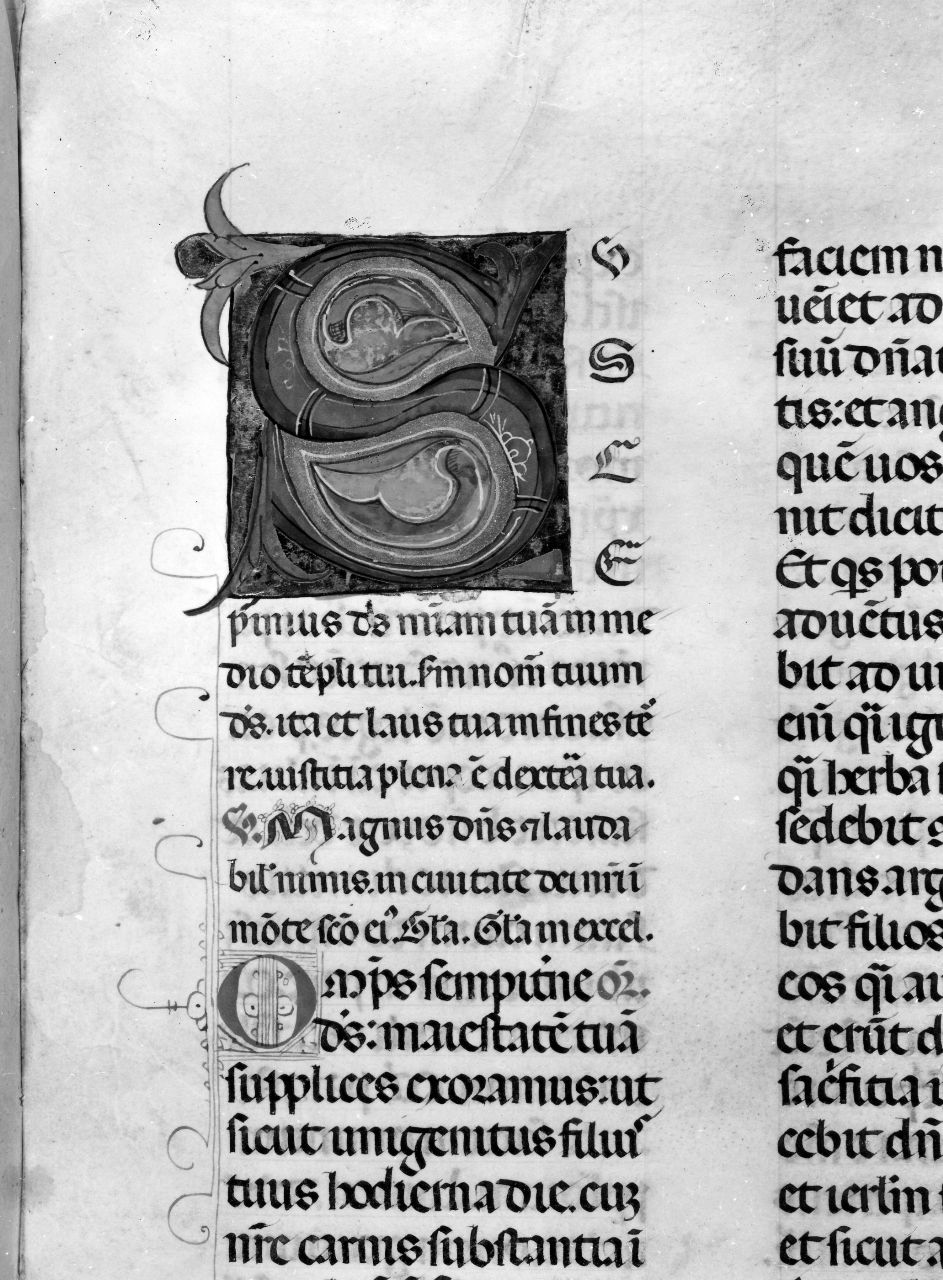 S
U
S
C
E
p̃mus ds̃ mĩam tuã in me
dio tẽpli tui. sm̃ nom̃ tuum
ds̃. ita et laus tua in fines tẽ
re. iustitia plena ẽ dextẽa tua.
V. Magnus dñs ⁊ lauda
bil' nimis. in ciuitate dei nr̃i ĩ
mõte scõ ei'. Gl̃a. Gl̃a in excel.
Omp̃s sempit̃ne or̃.
ds̃: maiestatẽ tuã
supplices exoramus: ut
sicut unigenitus filius
tuus hodierna die. cuʒ
nr̃e carnis substantia ĩ
faciem m
uẽiet ad
suũ dñat
tis: et ang
quẽ uos
nit dicit
Et qs por
aduẽtus
bit ad un
em̃ q̃i ign
q̃i herba f
sedebit
dans arg
bit filios
eos q̃i au
et erũt d
sac̃fitia i
cebit dñ
et ierlm̃
et sicut a